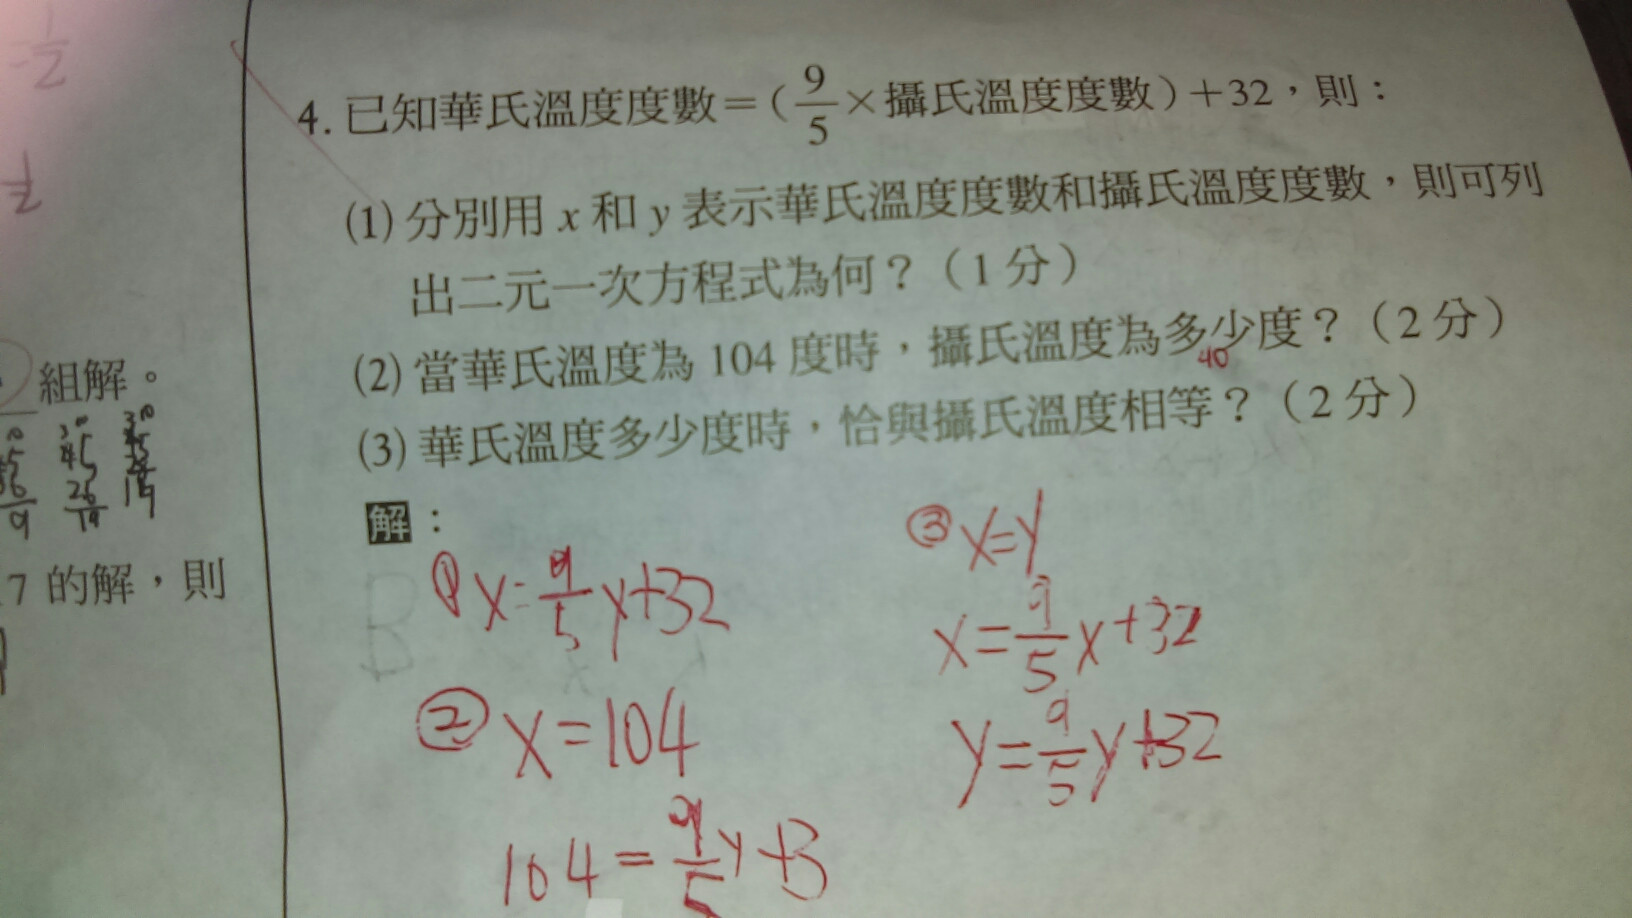 4. 已知華氏溫度度數=(9/5×攝氏溫度度數)+32，則：
(1) 分別用 x 和 y 表示華氏溫度度數和攝氏溫度度數，則可列
出二元一次方程式為何？（1分）
(2) 當華氏溫度為 104 度時，攝氏溫度為多少度？（2分）
40
(3) 華氏溫度多少度時，恰與攝氏溫度相等？（2分）
解：
① x=9/5y+32
② x=104
104=9/5y+3
③ x=y
x=9/5x+32
y=9/5y+32
組解。
45
26
19
7 的解，則